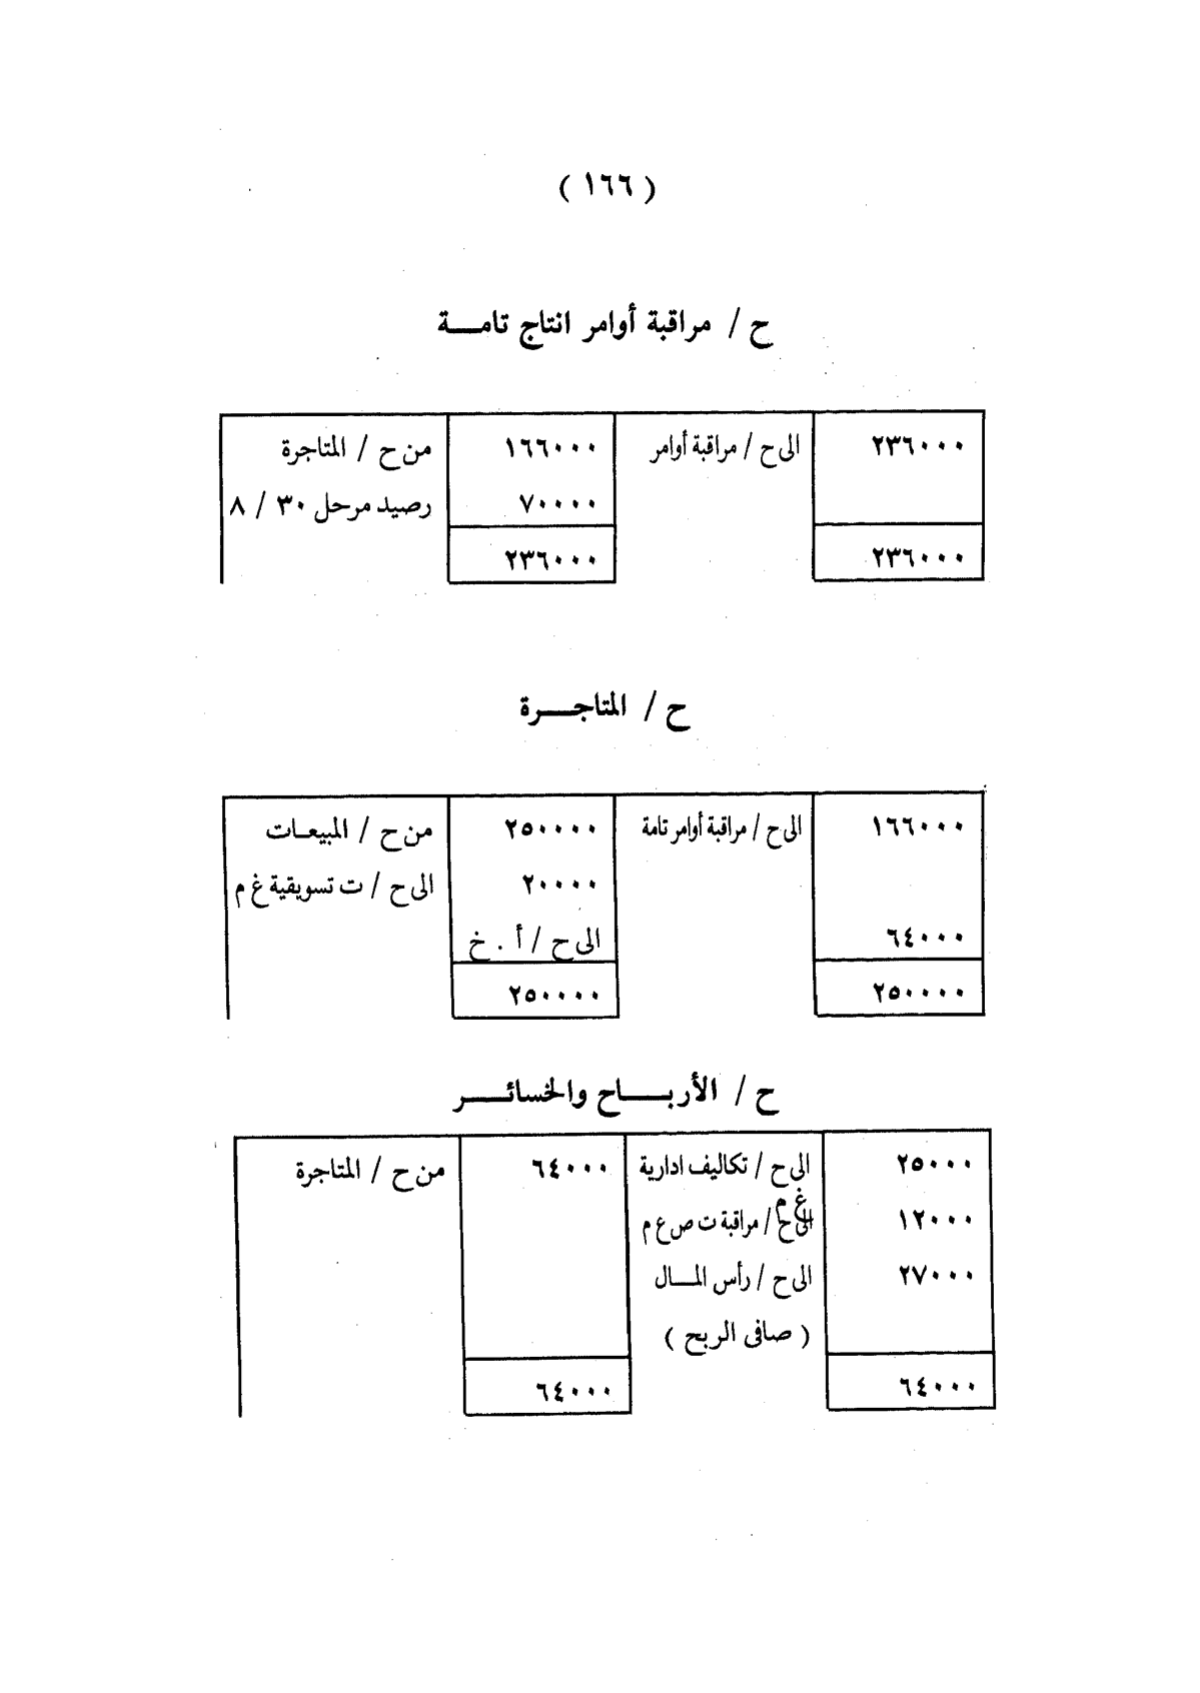 ( ١٦٦ )
ح / مراقبة أوامر انتاج تامـــة
٢٣٦٠٠٠ الى ح / مراقبة أوامر ١٦٦٠٠٠ من ح / المتاجرة
٧٠٠٠٠ رصيد مرحل ٣٠ / ٨
٢٣٦٠٠٠ ٢٣٦٠٠٠
ح / المتاجـــرة
١٦٦٠٠٠ الى ح / مراقبة أوامر تامة ٢٥٠٠٠٠ من ح / المبيعـات
٢٠٠٠٠ الى ح / ت تسويقية غ م
٦٤٠٠٠ الى ح / أ . خ
٢٥٠٠٠٠ ٢٥٠٠٠٠
ح / الأربـــاح والخسائـــر
٢٥٠٠٠ الى ح / تكاليف ادارية ٦٤٠٠٠ من ح / المتاجرة
غ م
١٢٠٠٠ الى ح / مراقبة ت ص ع م
٢٧٠٠٠ الى ح / رأس المــال
( صافى الربح )
٦٤٠٠٠ ٦٤٠٠٠